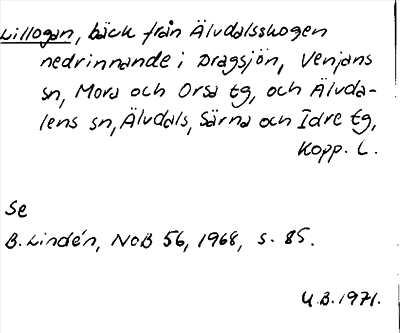 Lillogan, bäck från Älvdalsskogen
nedrinnande i Dragsjön, Venjans
sn, Mora och Orsa tg, och Älvda-
lens sn, Älvdals, Särna och Idre tg,
Kopp. L.
Se
B. Lindén, NoB 56, 1968, s. 85.
U.B. 1971.